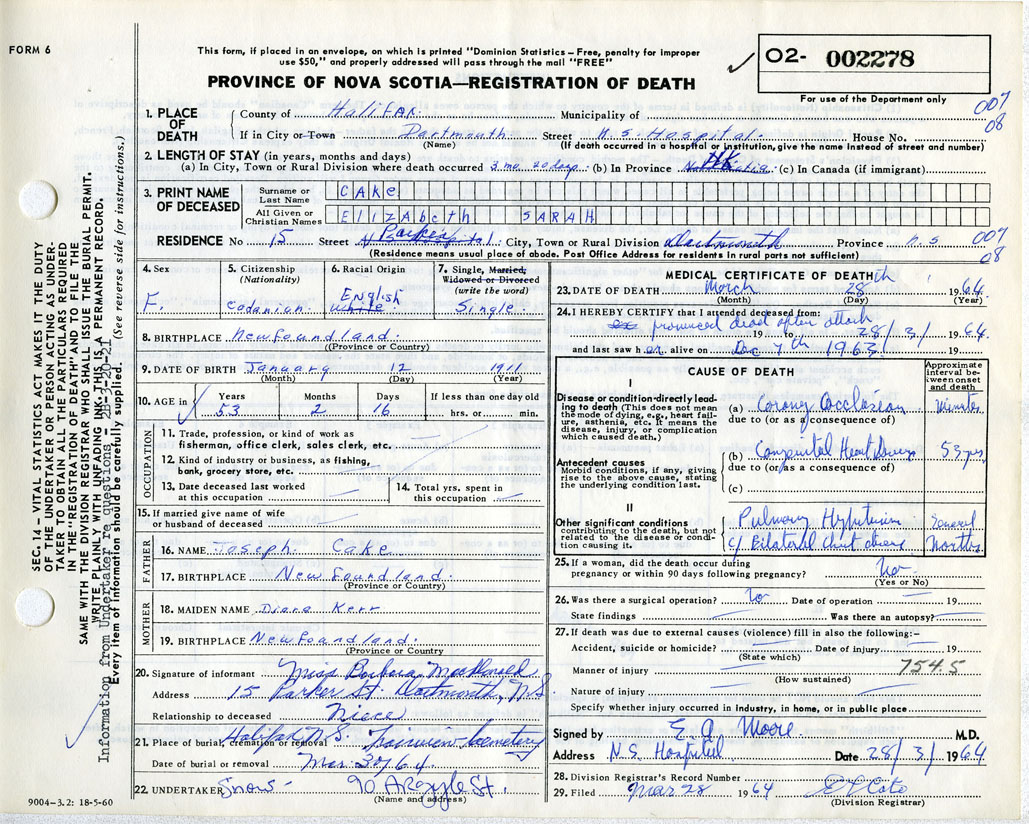 FORM 6
This form, if placed in an envelope, on which is printed "Dominion Statistics – Free, penalty for improper
use $50," and properly addressed will pass through the mail "FREE"
02- 002278
PROVINCE OF NOVA SCOTIA—REGISTRATION OF DEATH
For use of the Department only
007
08
1. PLACE OF DEATH
County of Halifax Municipality of
If in City or Town Dartmouth Street N.S. Hospital House No.
(Name) (If death occurred in a hospital or institution, give the name instead of street and number)
2. LENGTH OF STAY (in years, months and days)
(a) In City, Town or Rural Division where death occurred 3 mo 20 days (b) In Province (c) In Canada (if immigrant)
3. PRINT NAME OF DECEASED
Surname or Last Name CAKe
All Given or Christian Names ElIZAbeth SARAH
RESIDENCE No 15 Street Parker : City, Town or Rural Division Dartmouth Province N.S 007
08
(Residence means usual place of abode. Post Office Address for residents in rural parts not sufficient)
4. Sex
F.
5. Citizenship
(Nationality)
Canadian
6. Racial Origin
English
White
7. Single, Married,
Widowed or Divorced
(write the word)
Single
8. BIRTHPLACE Newfoundland.
(Province or Country)
9. DATE OF BIRTH January 12 1911
(Month) (Day) (Year)
10. AGE in
Years Months Days If less than one day old
53 2 16 hrs. or min.
OCCUPATION
11. Trade, profession, or kind of work as
fisherman, office clerk, sales clerk, etc.
12. Kind of industry or business, as fishing,
bank, grocery store, etc.
13. Date deceased last worked
at this occupation
14. Total yrs. spent in
this occupation
15. If married give name of wife
or husband of deceased
FATHER
16. NAME Joseph Cake
17. BIRTHPLACE Newfoundland
(Province or Country)
MOTHER
18. MAIDEN NAME Diana Kerr
19. BIRTHPLACE Newfoundland.
(Province or Country
20. Signature of informant Miss Barbara
Address 15 Parker St. Dartmouth, N.S.
Relationship to deceased Niece
21. Place of burial, cremation or removal Halifax N.S. Fairview Cemetery
Date of burial or removal Mar. 30/64
22. UNDERTAKER Snows 90 Argyle St.
(Name and address)
9004–3.2: 18-5-60
MEDICAL CERTIFICATE OF DEATH
23. DATE OF DEATH March 28th 1964
(Month) (Day) (Year)
24. I HEREBY CERTIFY that I attended deceased from:
pronounced dead after attack
19 to 28/3/ 1964
and last saw her alive on Dec 7th 1963 19
CAUSE OF DEATH
Approximate interval between onset and death
I
Disease or condition directly leading to death (This does not mean the mode of dying, e.g., heart failure, asthenia, etc. It means the disease, injury, or complication which caused death.)
(a) Corony Occlusion Minutes
due to (or as a consequence of)
Antecedent causes
Morbid conditions, if any, giving rise to the above cause, stating the underlying condition last.
(b) Congenital Heart Disease 53 yrs.
due to (or as a consequence of)
(c)
II
Other significant conditions
contributing to the death, but not related to the disease or condition causing it.
Pulmonary Several
c/ Bilateral chest disease Months
25. If a woman, did the death occur during
pregnancy or within 90 days following pregnancy? No
(Yes or No)
26. Was there a surgical operation? No Date of operation 19
State findings Was there an autopsy?
27. If death was due to external causes (violence) fill in also the following:–
Accident, suicide or homicide? Date of injury 19
(State which)
Manner of injury 754.5
(How sustained)
Nature of injury
Specify whether injury occurred in industry, in home, or in public place
Signed by E. A. Moore M.D.
Address N.S. Hospital Date 28/3/ 1964
28. Division Registrar's Record Number
29. Filed Mar 28 1964
(Division Registrar)
SEC. 14 – VITAL STATISTICS ACT MAKES IT THE DUTY
OF THE UNDERTAKER OR PERSON ACTING AS UNDER-
TAKER TO OBTAIN ALL THE PARTICULARS REQUIRED
IN THE "REGISTRATION OF DEATH" AND TO FILE THE
SAME WITH THE DIVISION REGISTRAR WHO SHALL ISSUE THE BURIAL PERMIT.
WRITE PLAINLY WITH UNFADING INK – THIS IS A PERMANENT RECORD.
Every item of information should be carefully supplied. (See reverse side for instructions.)
Information from Undertaker re questions